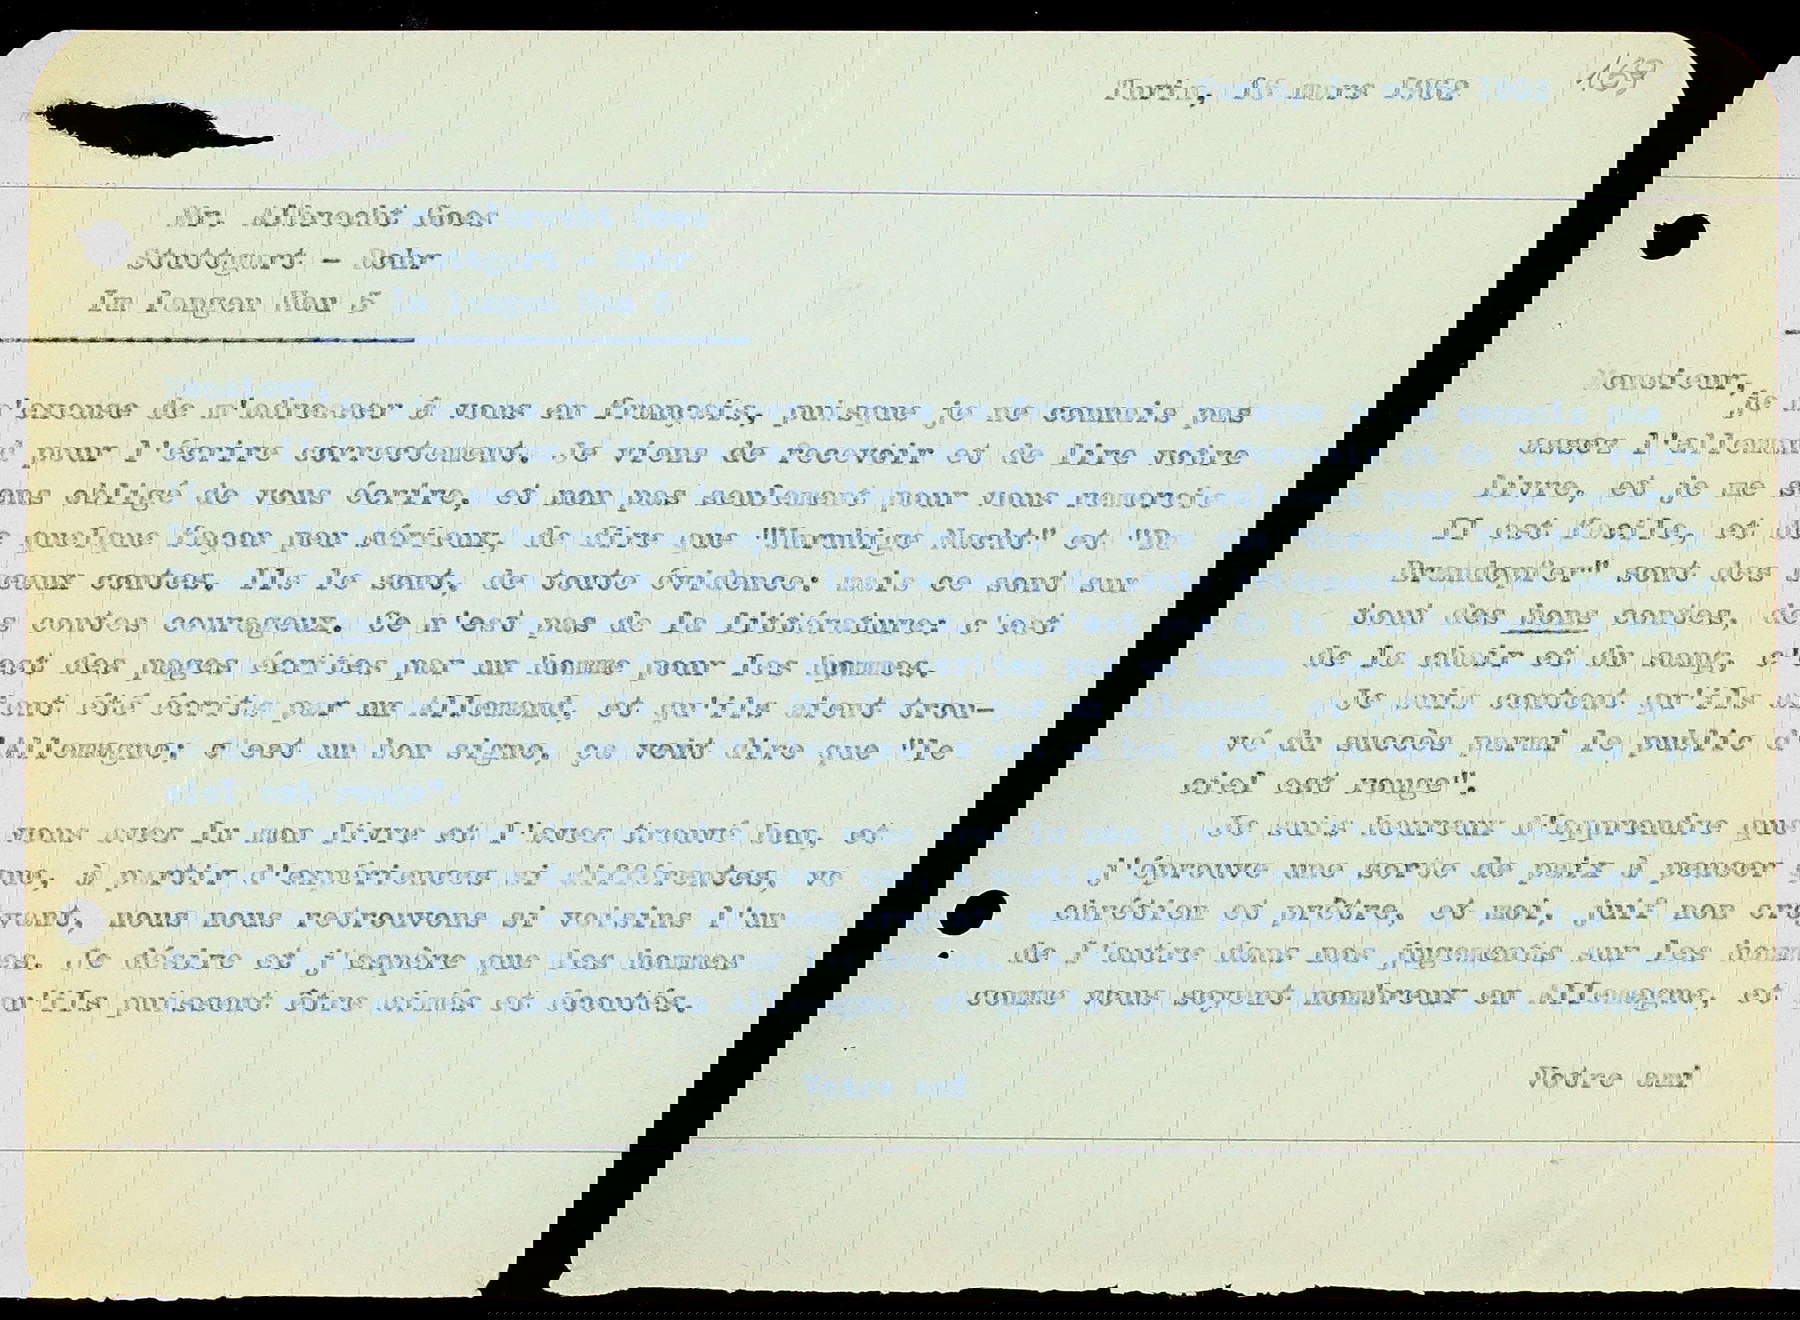 167
Torin, 16 mars 1962
Mr. Albrecht Goes
Stuttgart - Rohr
Im langen Hau 5
Monsieur,
je m'excuse de m'adresser à vous en français, puisque je ne connais pas
assez l'allemand pour l'écrire correctement. Je viens de recevoir et de lire votre
livre, et je me sens obligé de vous écrire, et non pas seulement pour vous remercie
Il est facile, et de quelque façon peu sérieux, de dire que "Unruhige Nacht" et "Da
Brandopfer" sont des beaux contes. Ils le sont, de toute évidence: mais ce sont sur
tout des bons contes, des contes courageux. Ce n'est pas de la littérature: c'est
de la chair et du sang, c'est des pages écrites par un homme pour les hommes.
Je suis content qu'ils aient été écrits par un Allemand, et qu'ils aient trou-
vé du succès parmi le public d'Allemagne; c'est un bon signe, ça veut dire que "le
ciel est rouge".
Je suis heureux d'apprendre que vous avez lu mon livre et l'avez trouvé bon, et
j'éprouve une sorte de paix à penser que, à partir d'expériences si différentes, vo
chrétien et prêtre, et moi, juif non croyant, nous nous retrouvons si voisins l'un
de l'autre dans nos jugements sur les hommes. Je désire et j'espère que les hommes
comme vous soyent nombreux en Allemagne, et qu'ils puissent être aimés et écoutés.
Votre ami